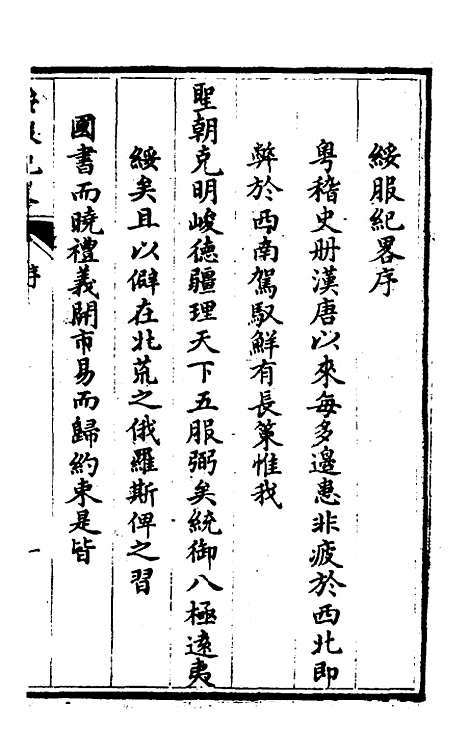 綏服紀畧序
粤稽史册漢唐以來每多邊患非疲於西北即
弊於西南駕馭鮮有長策惟我
聖朝克明峻德疆理天下五服弼矣統御八極遠夷
綏矣且以僻在北荒之俄羅斯俾之習
國書而曉禮義開市易而歸約束是皆
綏服紀畧
序
一